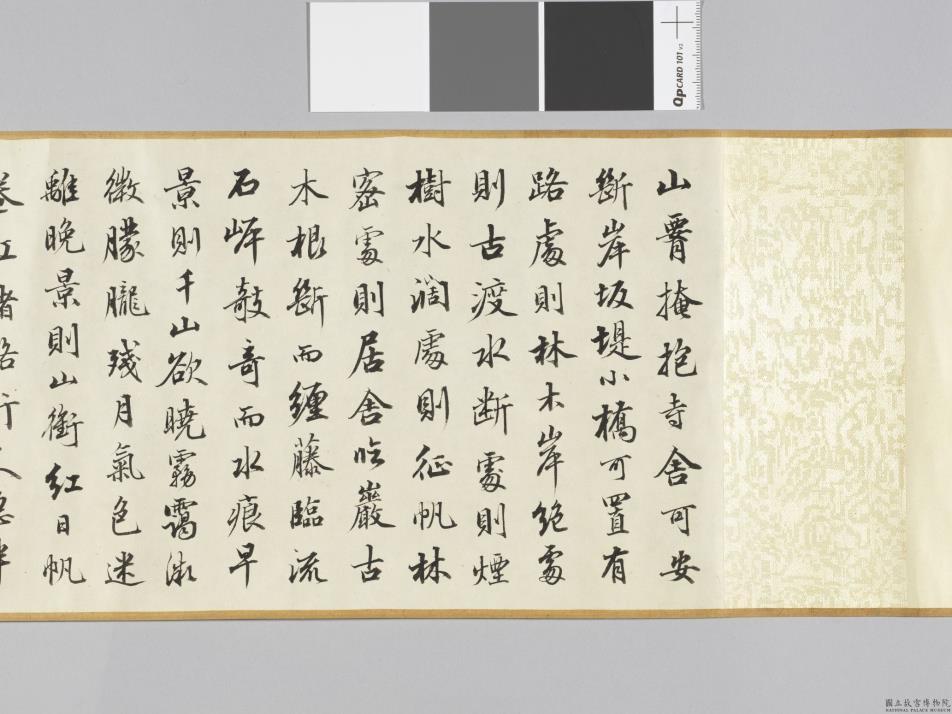 山腰掩抱寺舍可安
斷岸坂堤小橋可置有
路處則林木岸絕處
則古渡水断處則煙
樹水濶處則征帆林
密處則居舍臨巖古
木根斷而纏藤臨流
石岸敧奇而水痕早
景則千山欲曉霧靄微
微朦朧殘月氣色迷
離晚景則山銜紅日帆
卷江渚路行人急半
QPCARD 101 v3
國立故宮博物院
NATIONAL PALACE MUSEUM